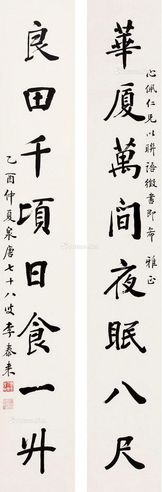 華厦萬间夜眠八尺
心佩仁兄以聯語徵書即希 雅正
良田千頃日食一升
乙酉仲夏泉唐七十八叟李泰来